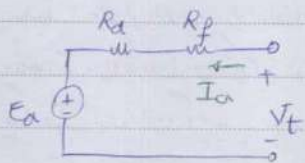 Rd Rf
Ia
Ea + -
+
Vt
-